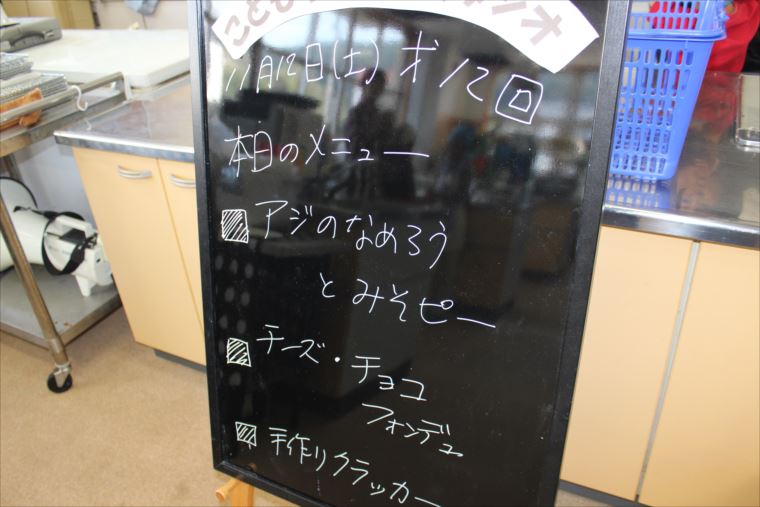 11月12日(土) 才ノ12回
本日のメニュー
アジのなめろう
とみそピー
チーズ・チョコ
フォンデュ
手作りクラッカー